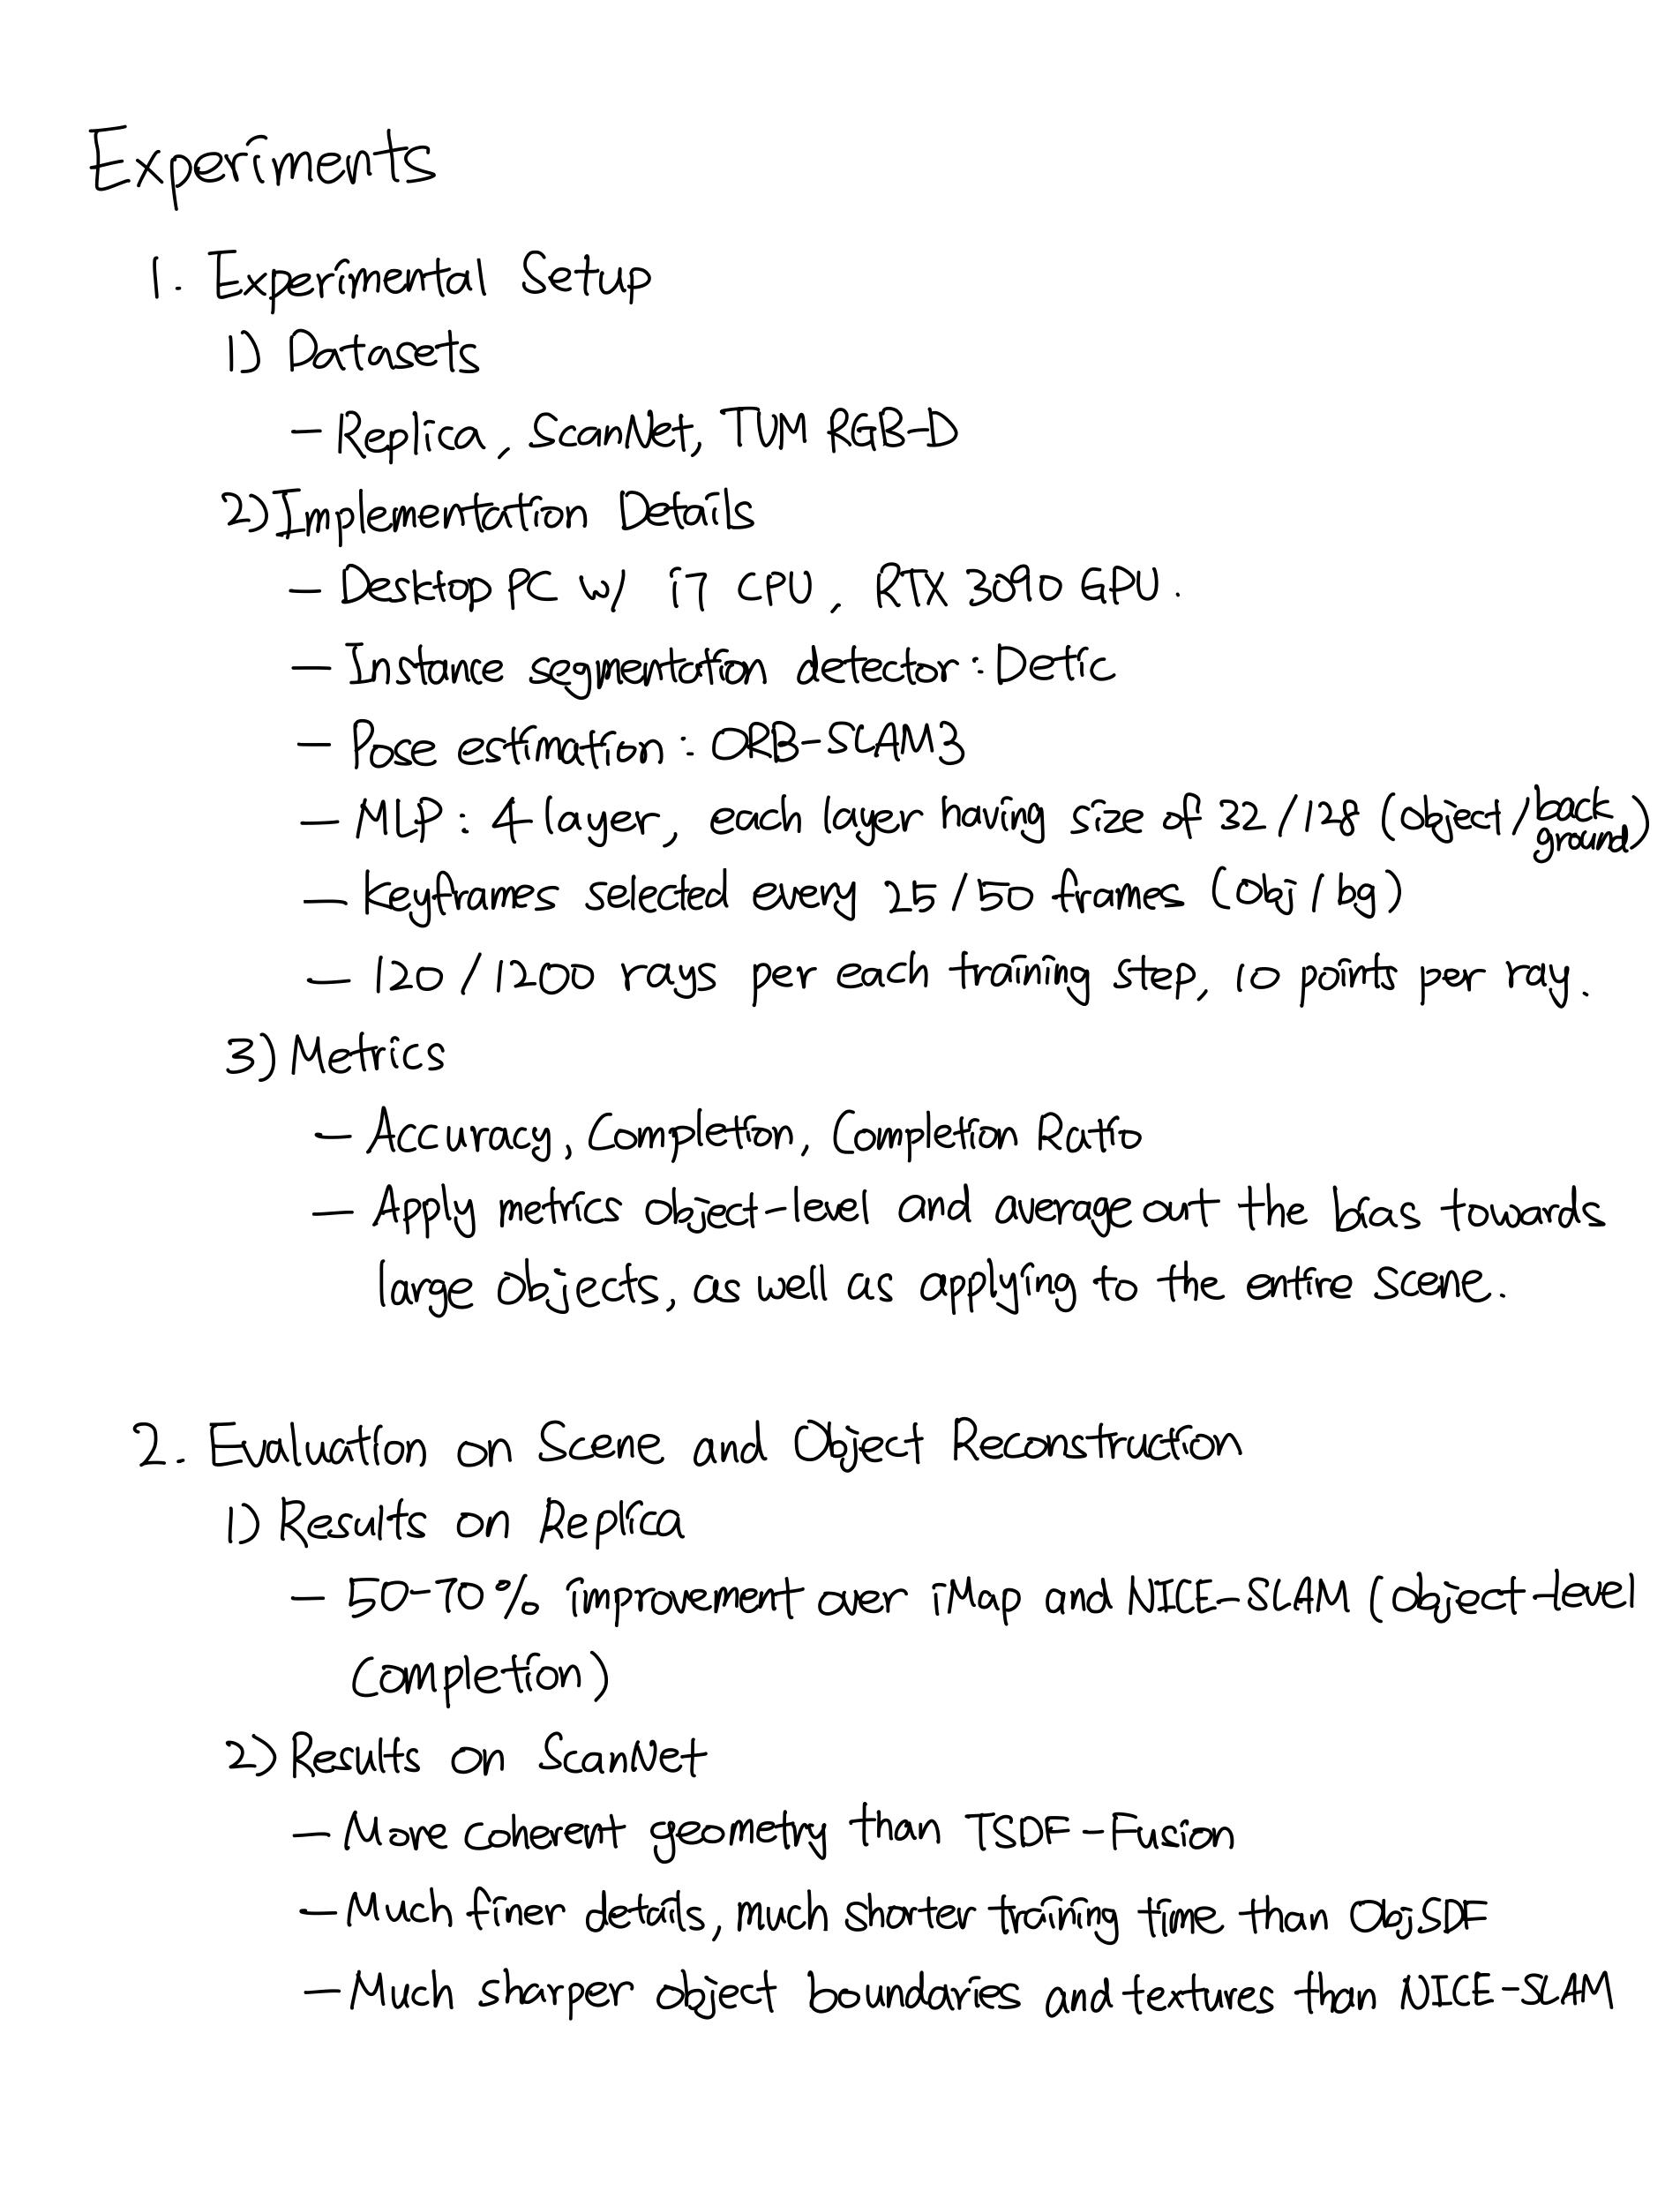 Experiments
1. Experimental Setup
1) Datasets
- Replica, ScanNet, TUM RGB-D
2) Implementation Details
- Desktop PC w/ i7 CPU, RTX 3090 GPU.
- Instance segmentation detector: Detic
- Pose estimation: ORB-SLAM3
- MLP: 4 layer, each layer having size of 32/128 (object/background)
- Keyframes selected every 25/50 frames (obj/bg)
- 120/1200 rays per each training step, 10 points per ray.
3) Metrics
- Accuracy, Completion, Completion Ratio
- Apply metrics object-level and average out the bias towards
large objects, as well as applying to the entire scene.
2. Evaluation on Scene and Object Reconstruction
1) Results on Replica
- 50-70% improvement over iMap and NICE-SLAM (object-level
completion)
2) Results on ScanNet
- More coherent geometry than TSDF-Fusion
- Much finer details, much shorter training time than ObjSDF
- Much sharper object boundaries and textures than NICE-SLAM